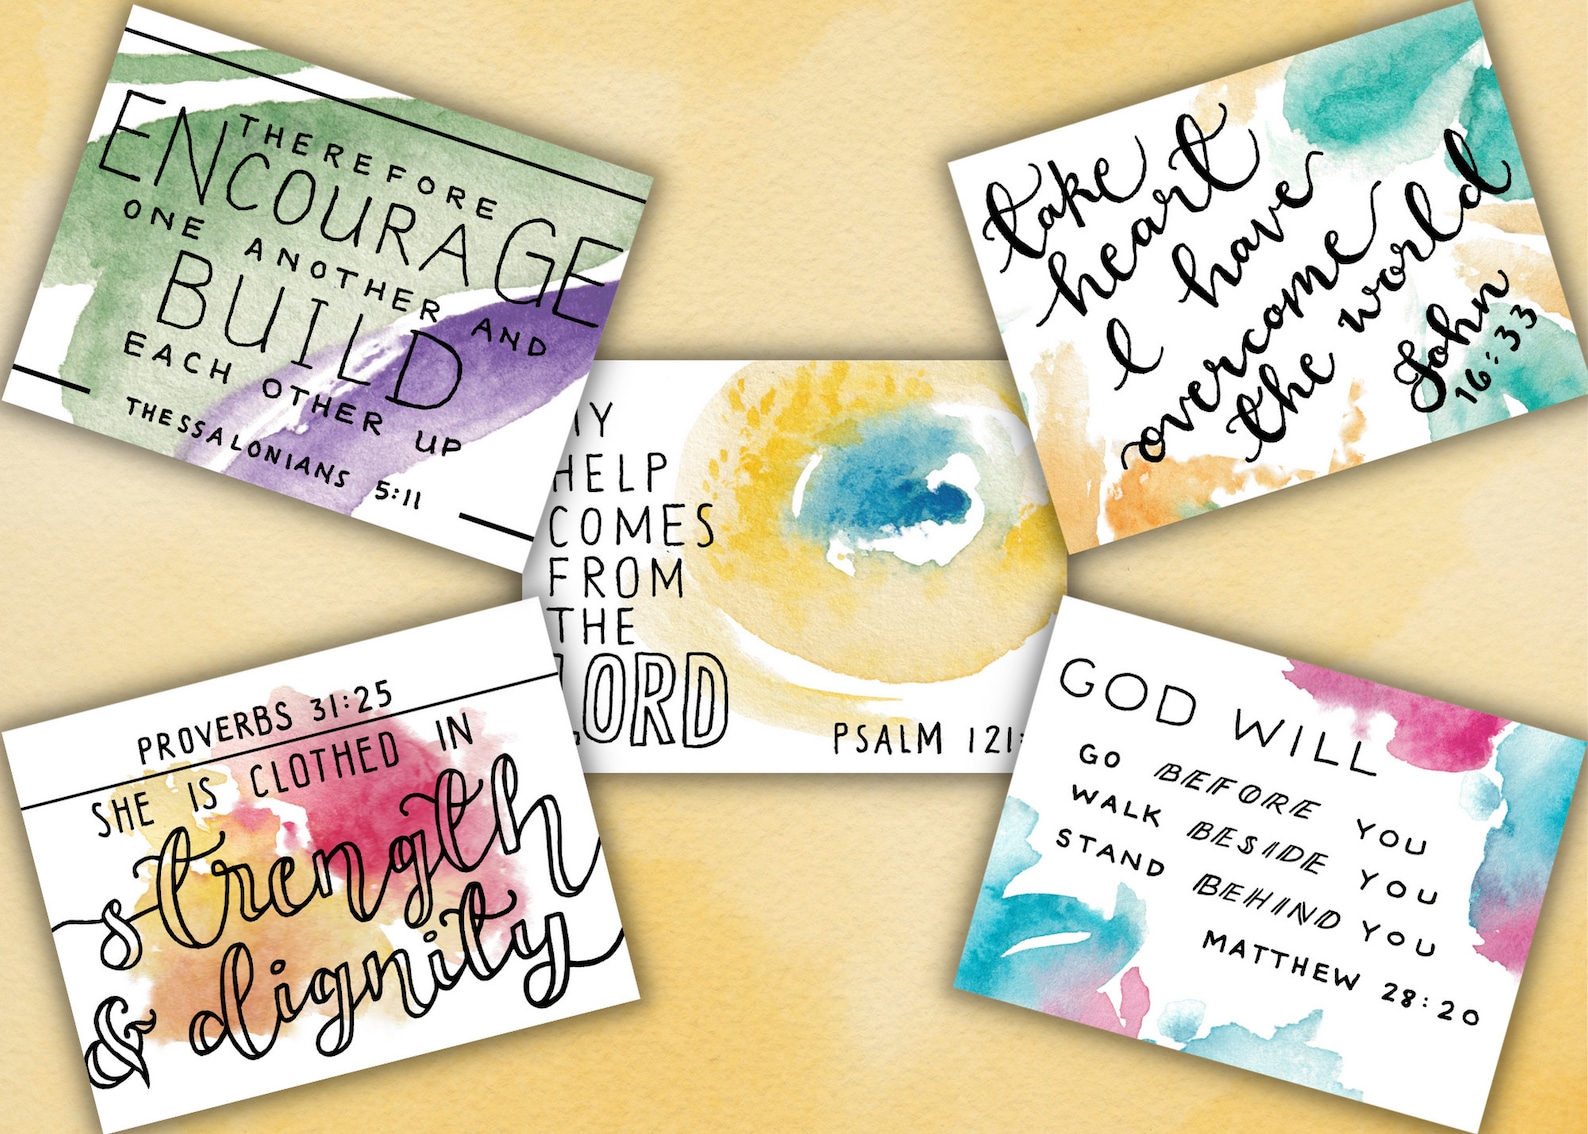 THEREFORE
ENCOURAGE
ONE ANOTHER AND
BUILD
EACH OTHER UP
THESSALONIANS 5:11
take
heart
I have
overcome
the world
John
16:33
MY
HELP
COMES
FROM
THE
LORD
PSALM 121:
PROVERBS 31:25
SHE IS CLOTHED IN
strength
& dignity
GOD WILL
GO BEFORE YOU
WALK BESIDE YOU
STAND BEHIND YOU
MATTHEW 28:20